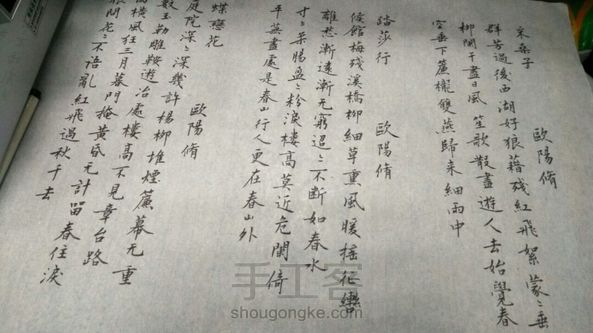 采桑子 歐陽脩
群芳過後西湖好狼藉残紅飛絮蒙〻垂
柳闌干盡日風 笙歌散盡遊人去始覺春
空垂下簾櫳雙燕歸來細雨中
踏莎行 歐陽脩
候館梅残溪橋柳細草薰風暖搖征轡
離愁漸遠漸无窮迢〻不斷如春水
寸〻柔腸盈〻粉淚樓高莫近危闌倚
平蕪盡處是春山行人更在春山外
蝶戀花 歐陽脩
庭院深〻深幾許楊柳堆煙簾幕无重
數玉勒雕鞍遊冶處樓高不見章台路
橫風狂三月暮門掩黃昏无計留春住淚
眼問花〻不語亂紅飛過秋千去
手工客
shougongke.com